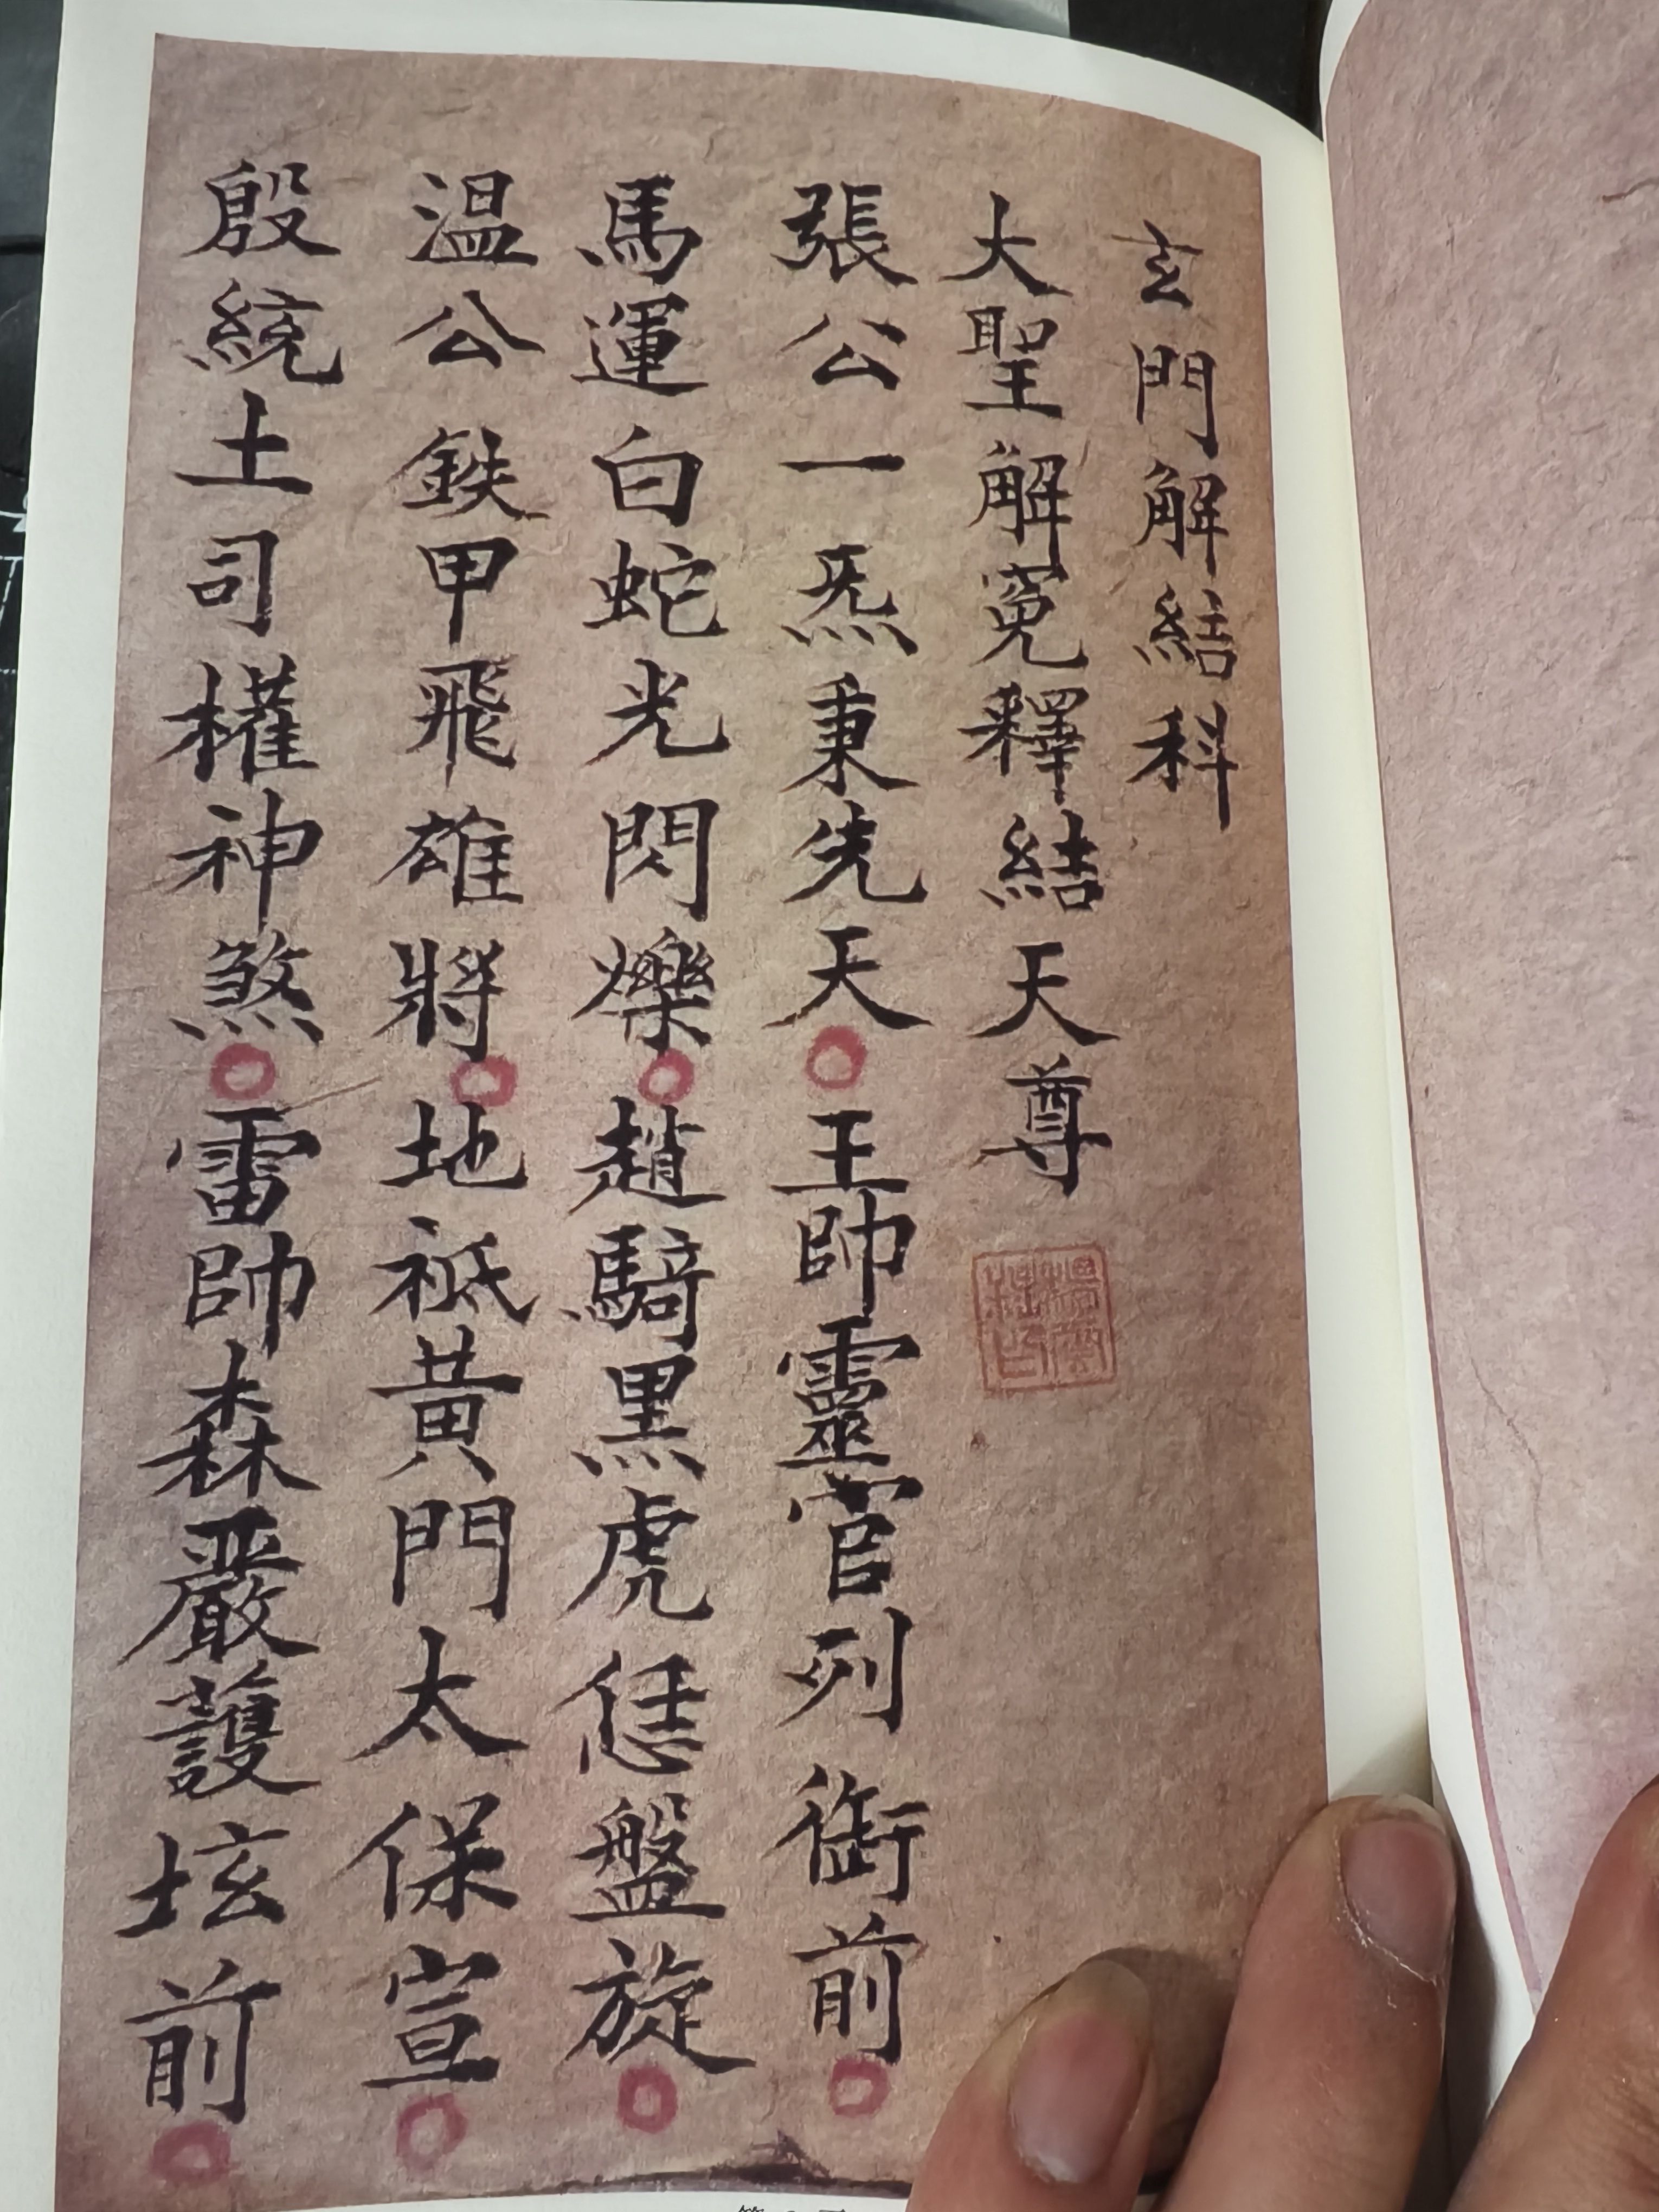 玄門解結科
大聖解寃釋結天尊
張公一炁秉先天○王帥靈官列衙前○
馬運白蛇光閃爍○趙騎黑虎恁盤旋○
溫公鉄甲飛雄將○地祇黃門太保宣○
殷統土司權神煞○雷帥森嚴護垓前○